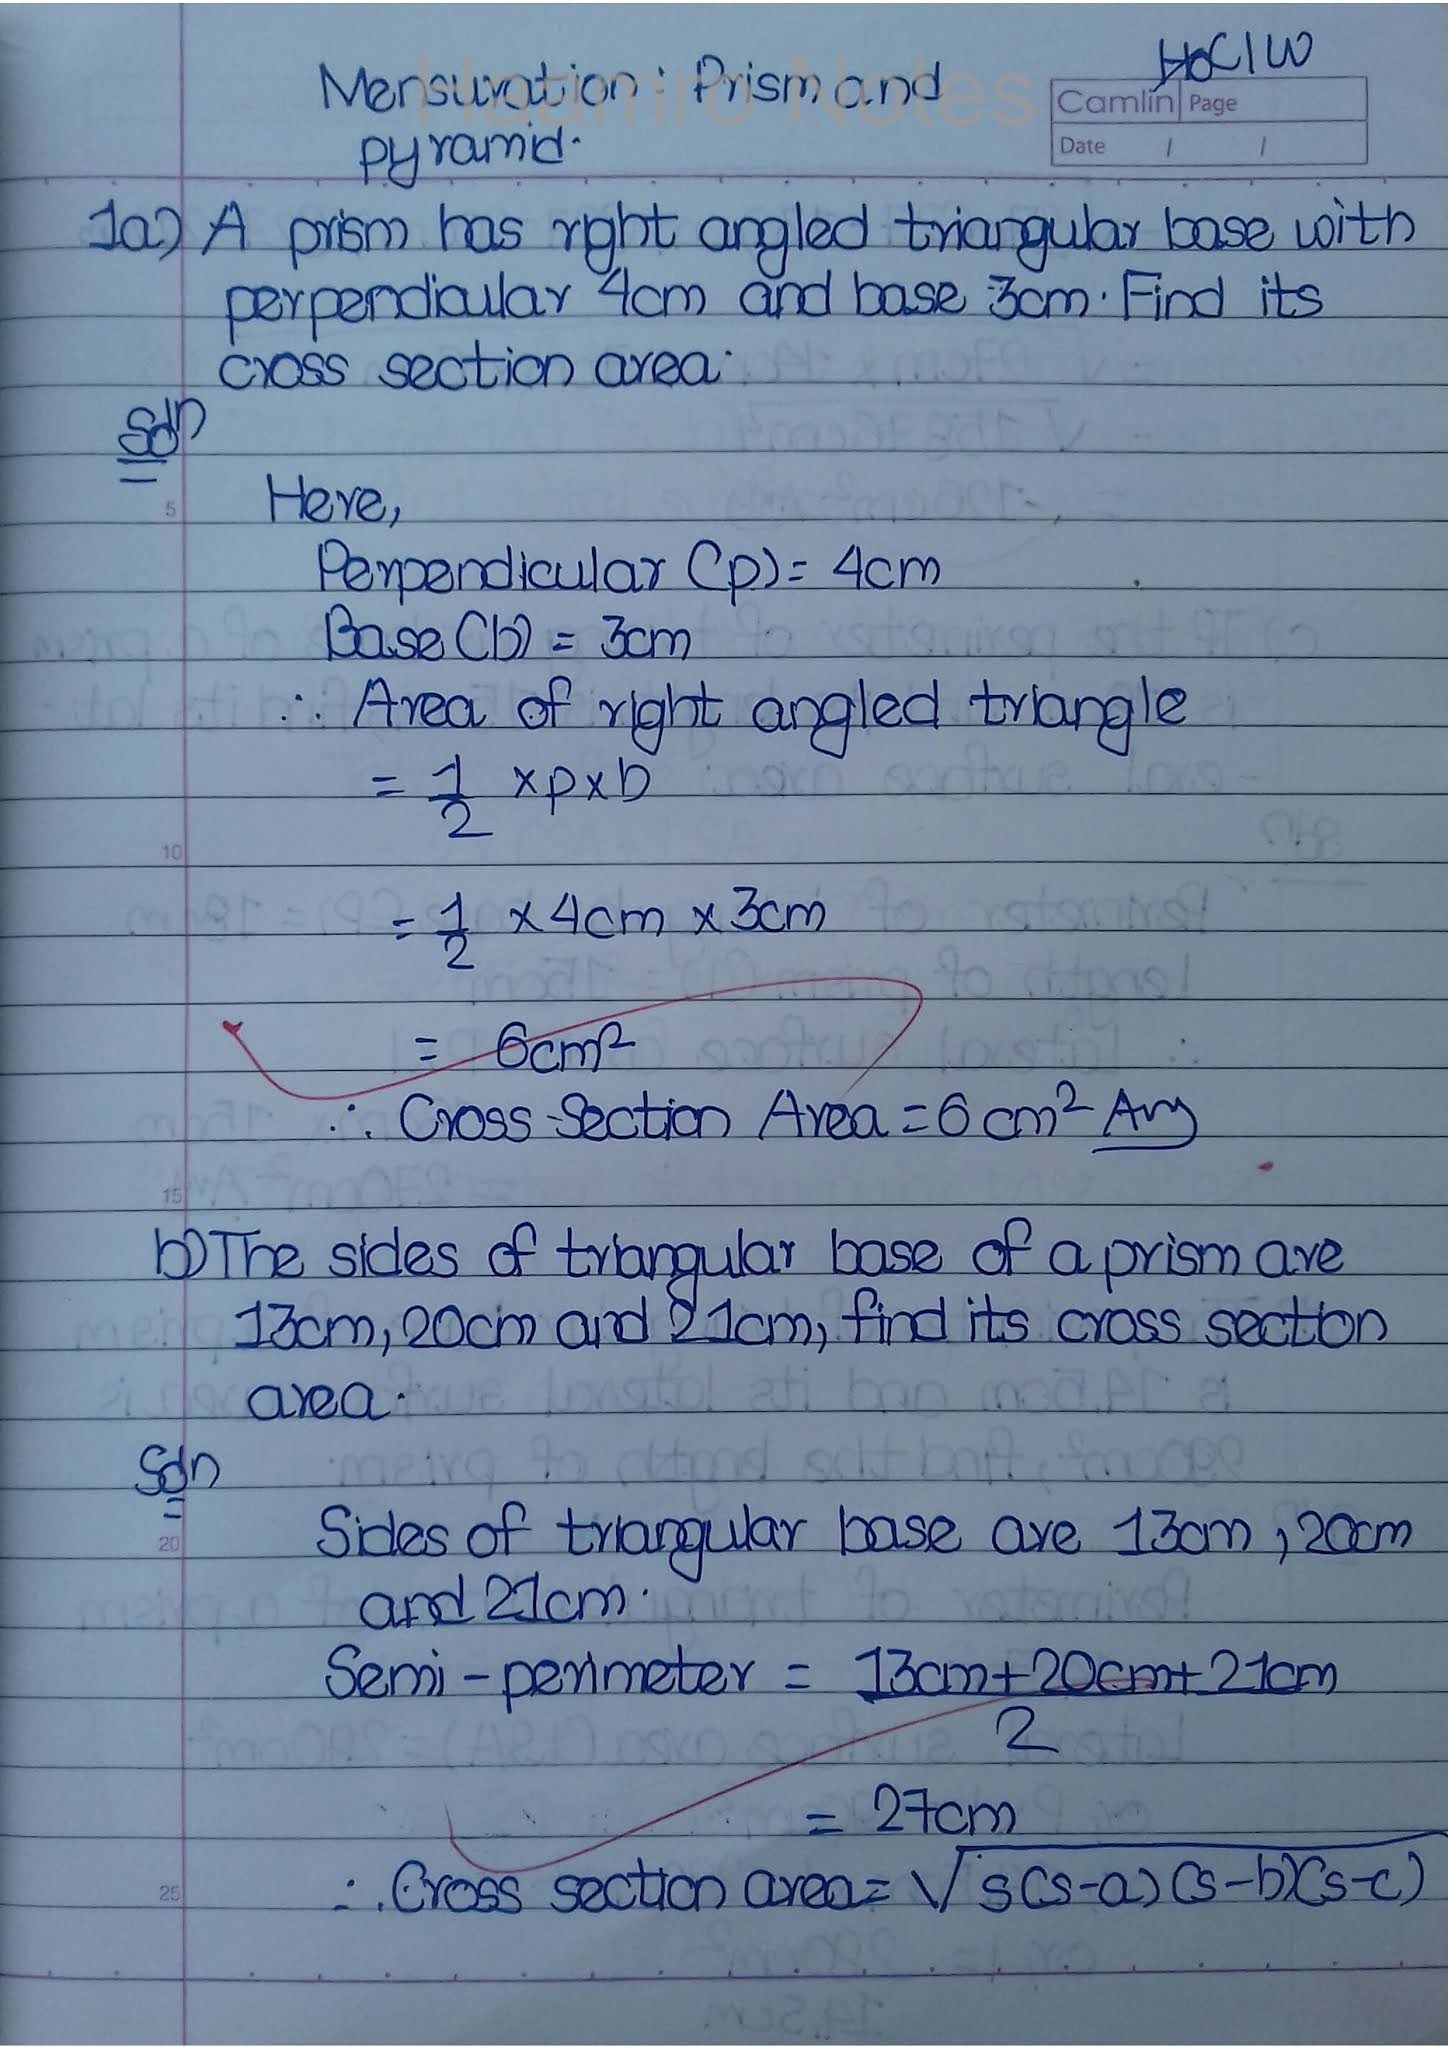 H̶o̶C/W
Mensuration: Prism and
pyramid.
Haamro Notes
Camlin Page
Date / /
1a) A prism has right angled triangular base with
perpendicular 4cm and base 3cm. Find its
cross section area.
Soln
Here,
5
Perpendicular (p) = 4cm
Base (b) = 3cm
∴ Area of right angled triangle
= 1/2 × p × b
10
= 1/2 × 4cm × 3cm
= 6cm²
∴ Cross-Section Area = 6cm² Ans
15
b) The sides of triangular base of a prism are
13cm, 20cm and 21cm, find its cross section
area.
Soln
Sides of triangular base are 13cm, 20cm
20
and 21cm.
Semi-perimeter = 13cm + 20cm + 21cm
2
= 27cm
∴ Cross section area = √s(s-a)(s-b)(s-c)
25